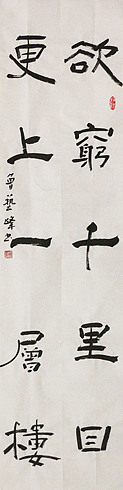 欲窮千里目
更上一層樓
曾藝峰书